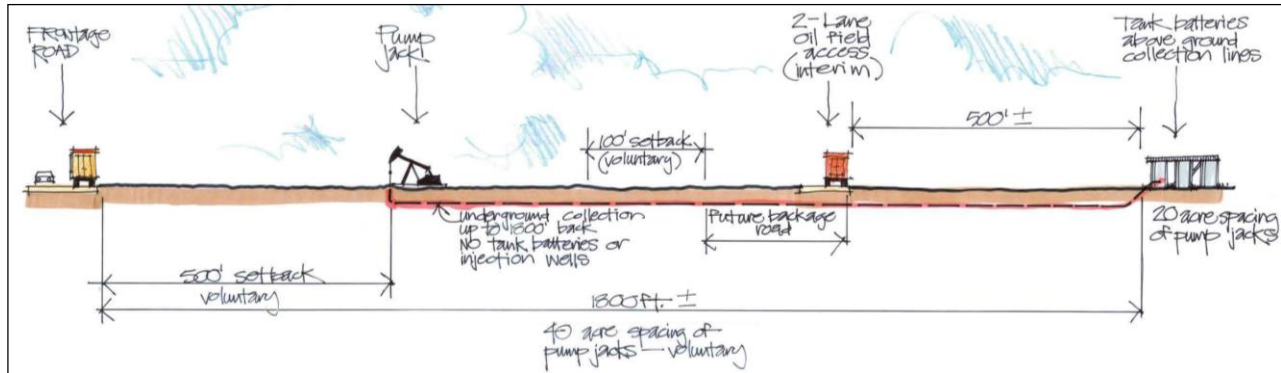 FRONTAGE
ROAD
Pump
jack
2-Lane
oil field
access
(interim)
Tank batteries
above ground
collection lines
500' ±
100' setback
(voluntary)
underground collection
up to 1800' back
NO tank batteries or
injection wells
Future backage
road
20 acre spacing
of pump jacks
500' setback
voluntary
1800 ft. ±
40 acre spacing of
pump jacks — voluntary